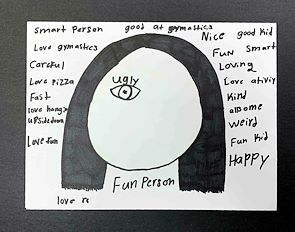 smart Person
good at gymastics
Nice
good kid
Love gymastics
Fun
Smart
Careful
Loving
Love pizza
Love ativiy
Fast
Kind
love hangs
upsidedown
alsome
weird
Love fun
Fun kid
Happy
ugly
Fun Person
love